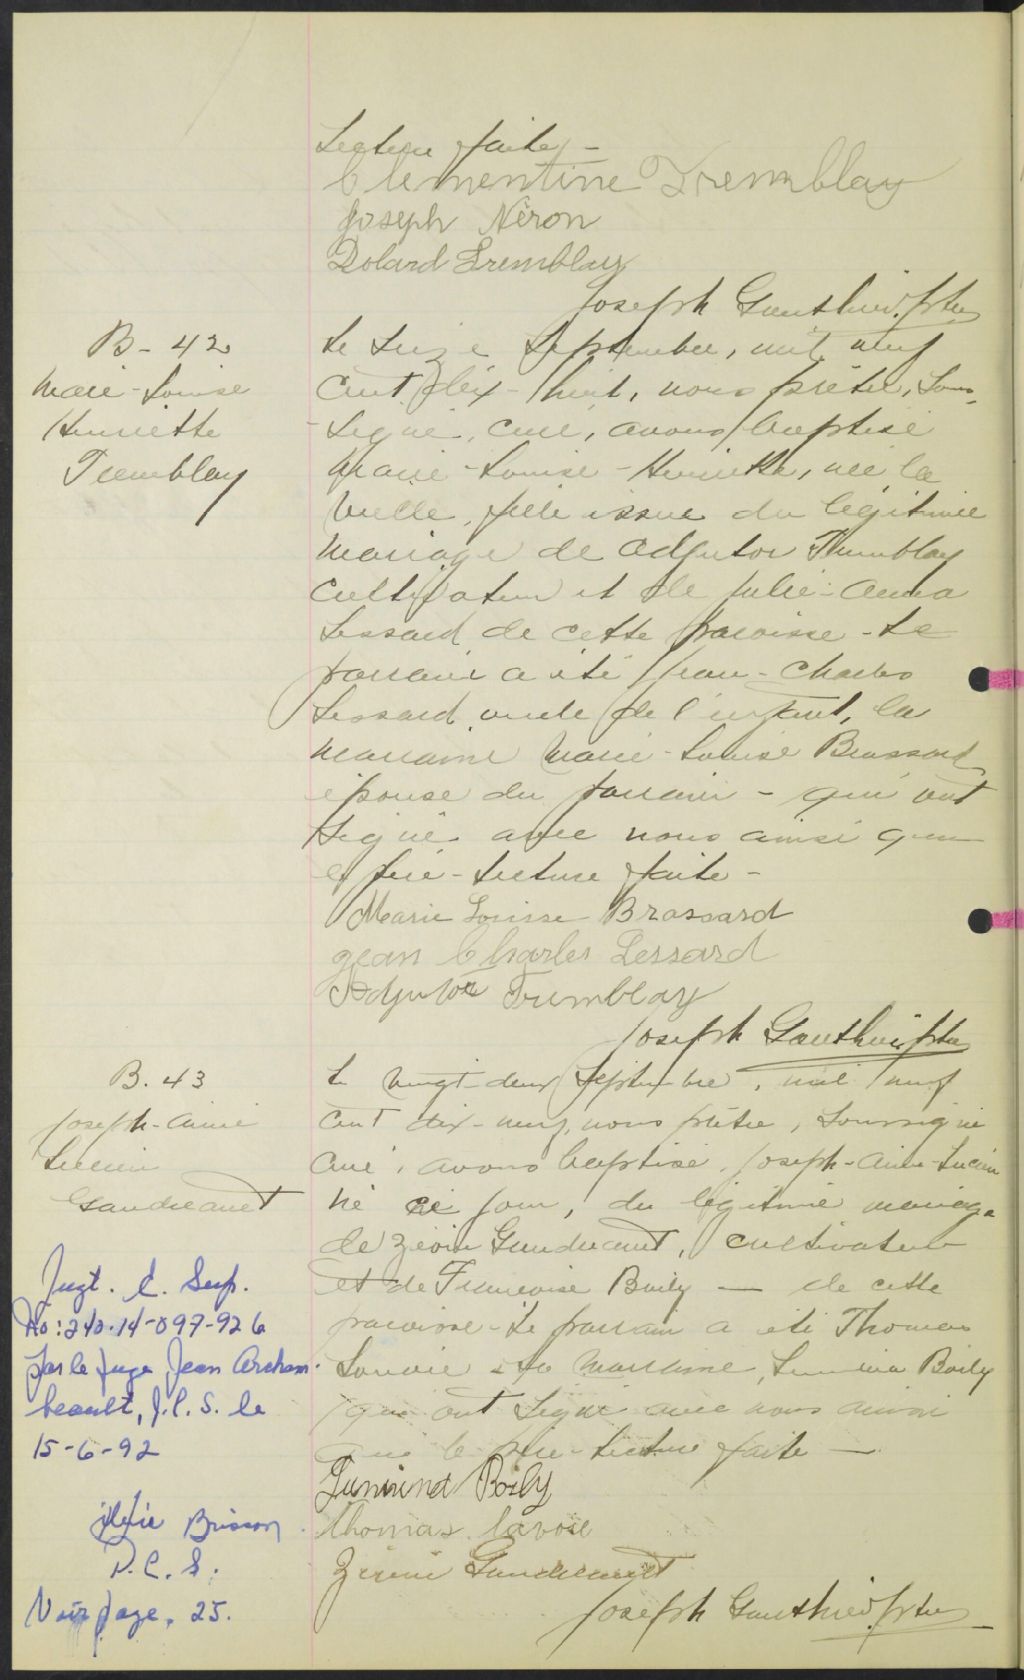 Lecture faite -
Clementine Tremblay
Joseph Néron
Dolard Tremblay
Joseph Gauthier, ptre
B - 42
Marie-Louise
Henriette
Tremblay
Le seize Septembre, mil neuf
cent dix-huit, nous prêtre, sous-
signé, curé, avons baptisé
Marie-Louise-Henriette, née la
veille, fille issue du légitime
mariage de Adjutor Tremblay
cultivateur et de Julie-Anna
Lessard de cette paroisse - Le
parrain a été Jean-Charles
Lessard oncle de l'enfant, la
marraine Marie-Louise Brassard
épouse du parrain - qui ont
signé avec nous ainsi que
le père - Lecture faite -
Marie Louise Brassard
Jean Charles Lessard
Adjutor Tremblay
Joseph Gauthier, ptre
B. 43
Joseph-Aimé
Lucien
Gaudreault
Le vingt-deux Septembre, mil neuf
cent dix-neuf, nous prêtre, soussigné
curé, avons baptisé, Joseph-Aimé-Lucien
né ce jour, du légitime mariage
de Gaudreault, cultivateur
et de Françoise Boily — de cette
paroisse - Le parrain a été Thomas
Lavoie la marraine, Boily
qui ont signé avec nous ainsi
que le père - Lecture faite —
Boily
Thomas Lavoie
Gaudreault
Joseph Gauthier, ptre
Jugt. C. Sup.
No: 240-14-097-926
par le juge Jean Archam-
beault, J.C.S. le
15-6-92
Brisson
P.C.S.
Voir page. 25.